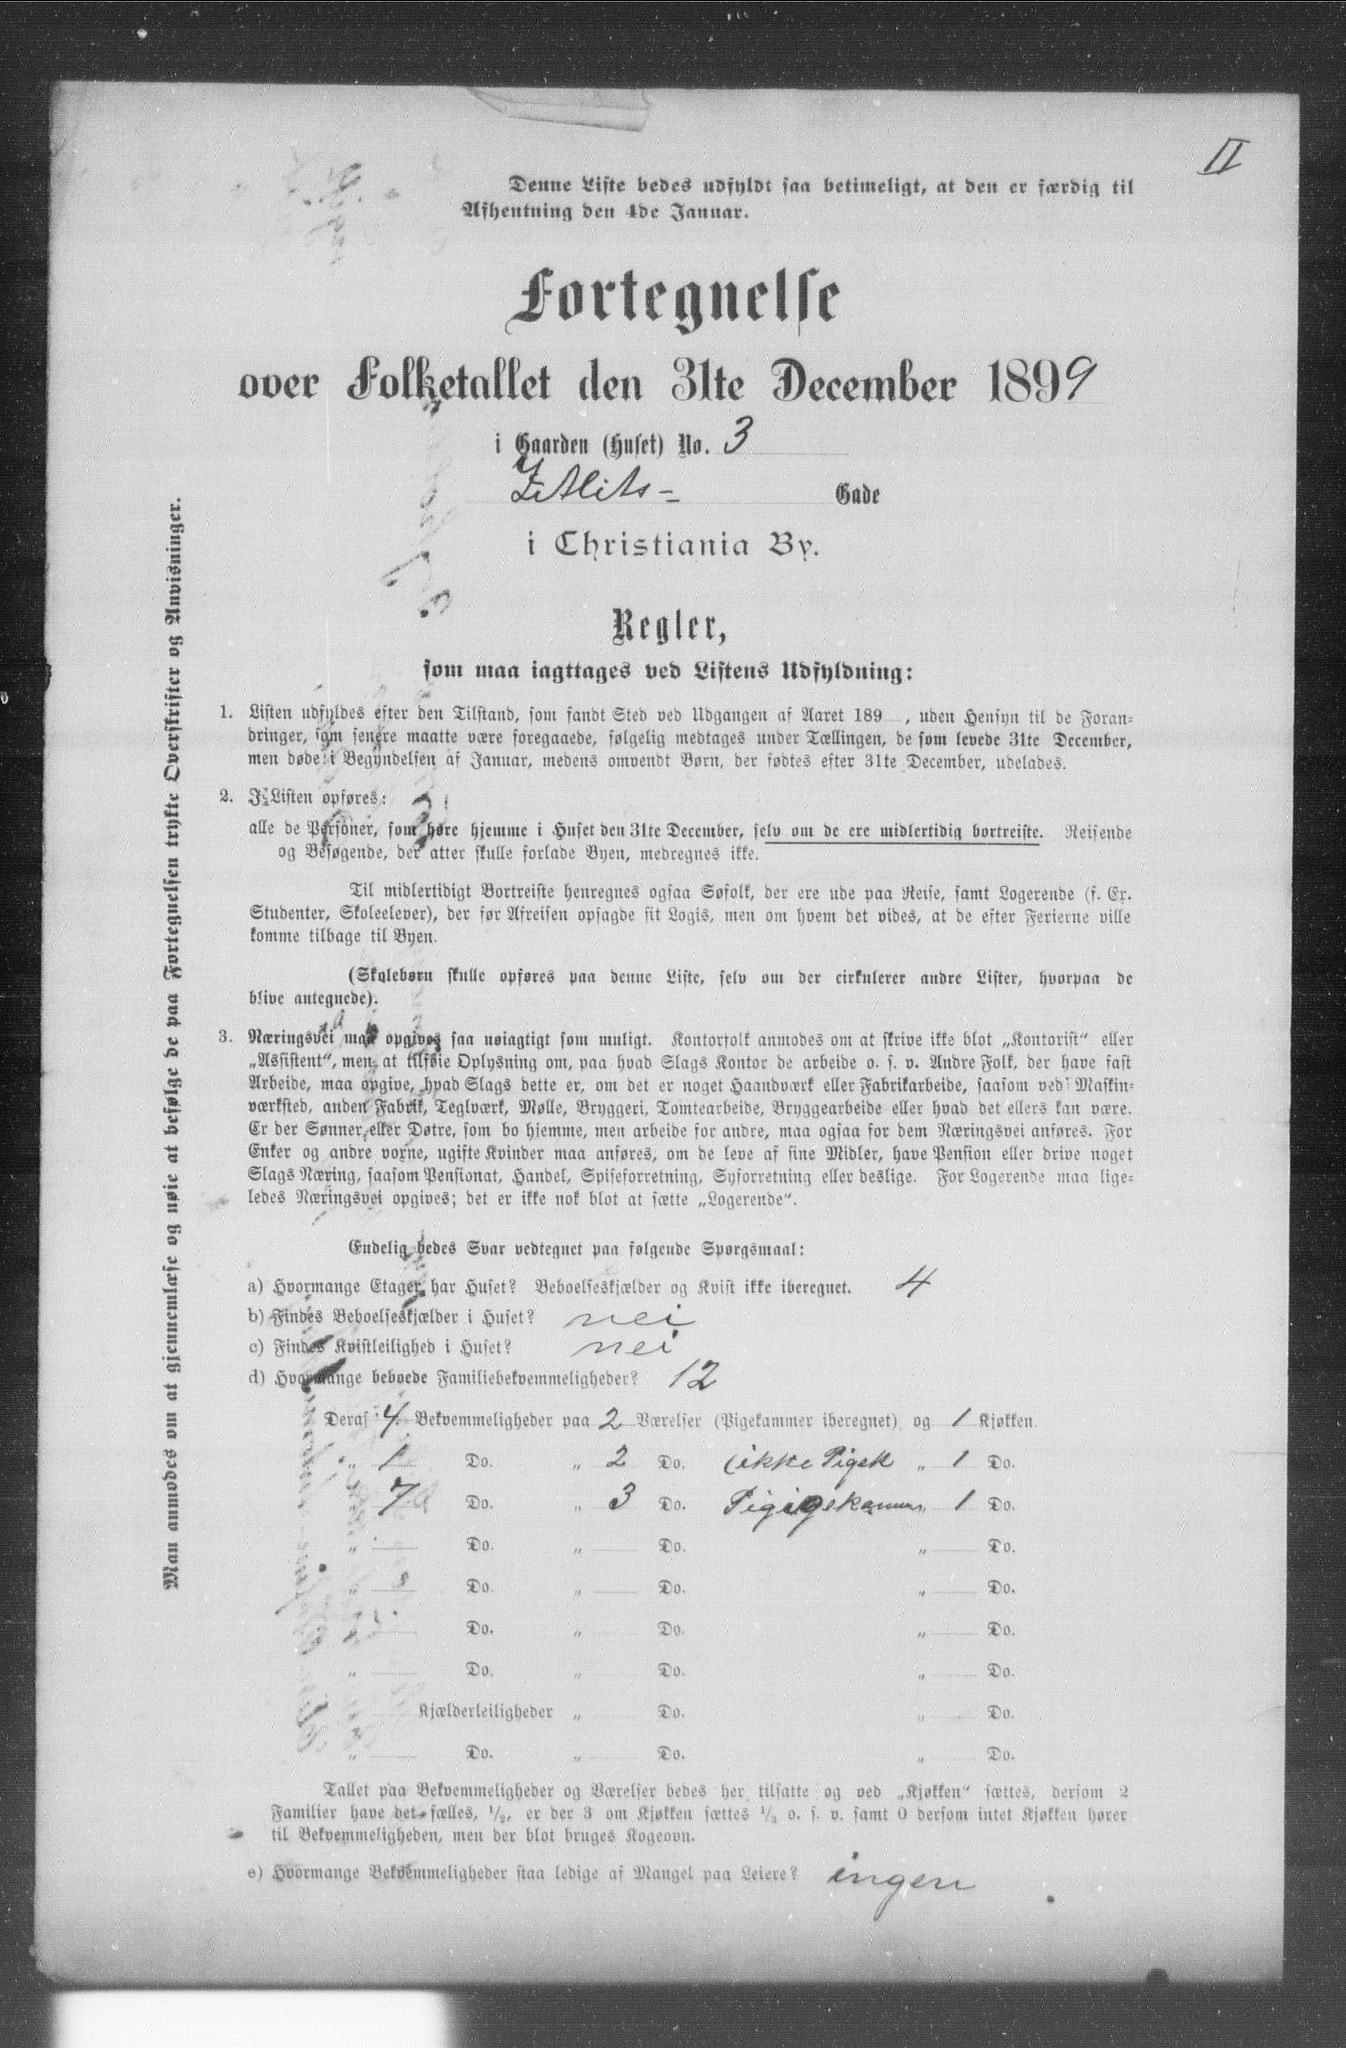 II
Denne Liste bedes udfyldt saa betimeligt, at den er færdig til
Afhentning den 4de Januar.
Fortegnelse
over Folketallet den 31te December 1899
i Gaarden (Huset) No. 3
Zetlits- Gade
i Christiania By.
Regler,
som maa iagttages ved Listens Udfyldning:
1. Listen udfyldes efter den Tilstand, som fandt Sted ved Udgangen af Aaret 189 , uden Hensyn til de Foran-
dringer, som senere maatte være foregaaede, følgelig medtages under Tællingen, de som levede 31te December,
men døde i Begyndelsen af Januar, medens omvendt Børn, der fødtes efter 31te December, udelades.
2. I Listen opføres:
alle de Personer, som høre hjemme i Huset den 31te December, selv om de ere midlertidig bortreiste. Reisende
og Besøgende, der atter skulle forlade Byen, medregnes ikke.
Til midlertidigt Bortreiste henregnes ogsaa Søfolk, der ere ude paa Reise, samt Logerende (f. Ex.
Studenter, Skoleelever), der før Afreisen opsagde sit Logis, men om hvem det vides, at de efter Ferierne ville
komme tilbage til Byen.
(Skylebørn skulle opføres paa denne Liste, selv om der cirkulerer andre Lister, hvorpaa de
blive antegnede).
3. Næringsvei maa opgives saa nøiagtigt som muligt. Kontorfolk anmodes om at skrive ikke blot „Kontorist“ eller
„Assistent“, men at tilføie Oplysning om, paa hvad Slags Kontor de arbeide o. s. v. Andre Folk, der have fast
Arbeide, maa opgive, hvad Slags dette er, om det er noget Haandværk eller Fabrikarbeide, saasom ved Maskin-
værksted, anden Fabrik, Teglværk, Mølle, Bryggeri, Tomtearbeide, Bryggearbeide eller hvad det ellers kan være.
Er der Sønner eller Døtre, som bo hjemme, men arbeide for andre, maa ogsaa for dem Næringsvei anføres. For
Enker og andre voxne, ugifte Kvinder maa anføres, om de leve af sine Midler, have Pension eller drive noget
Slags Næring, saasom Pensionat, Handel, Spiseforretning, Syforretning eller deslige. For Logerende maa lige-
ledes Næringsvei opgives; det er ikke nok blot at sætte „Logerende“.
Endelig bedes Svar vedtegnet paa følgende Spørgsmaal:
a) Hvormange Etager har Huset? Beboelseskjælder og Kvist ikke iberegnet. 4
b) Findes Beboelseskjælder i Huset? nei
c) Findes Kvistleilighed i Huset? nei
d) Hvormange beboede Familiebekvemmeligheder? 12
Deraf 4 Bekvemmeligheder paa 2 Værelser (Pigekammer iberegnet) og 1 Kjøkken.
„ 1 Do. „ 2 Do. (ikke Pigek „ 1 Do.
7 Do. „ 3 Do. „ 1 Do.
„ Do. „ Do. „ Do.
„ Do. „ Do. „ Do.
„ Do. „ Do. „ Do.
„ Do. „ Do. „ Do.
„ Kjælderleiligheder „ Do. „ Do.
„ Do. „ Do. „ Do.
Tallet paa Bekvemmeligheder og Værelser bedes her tilsatte og ved „Kjøkken“ sættes, dersom 2
Familier have det fælles, 1/2, er der 3 om Kjøkken sættes 1/3 o. s. v. samt 0 dersom intet Kjøkken hører
til Bekvemmeligheden, men der blot bruges Kogeovn.
e) Hvormange Bekvemmeligheder staa ledige af Mangel paa Leiere? ingen
Man anmodes om at gjennemlæse og nøie at befølge de paa Fortegnelsen trykte Overskrifter og Anvisninger.